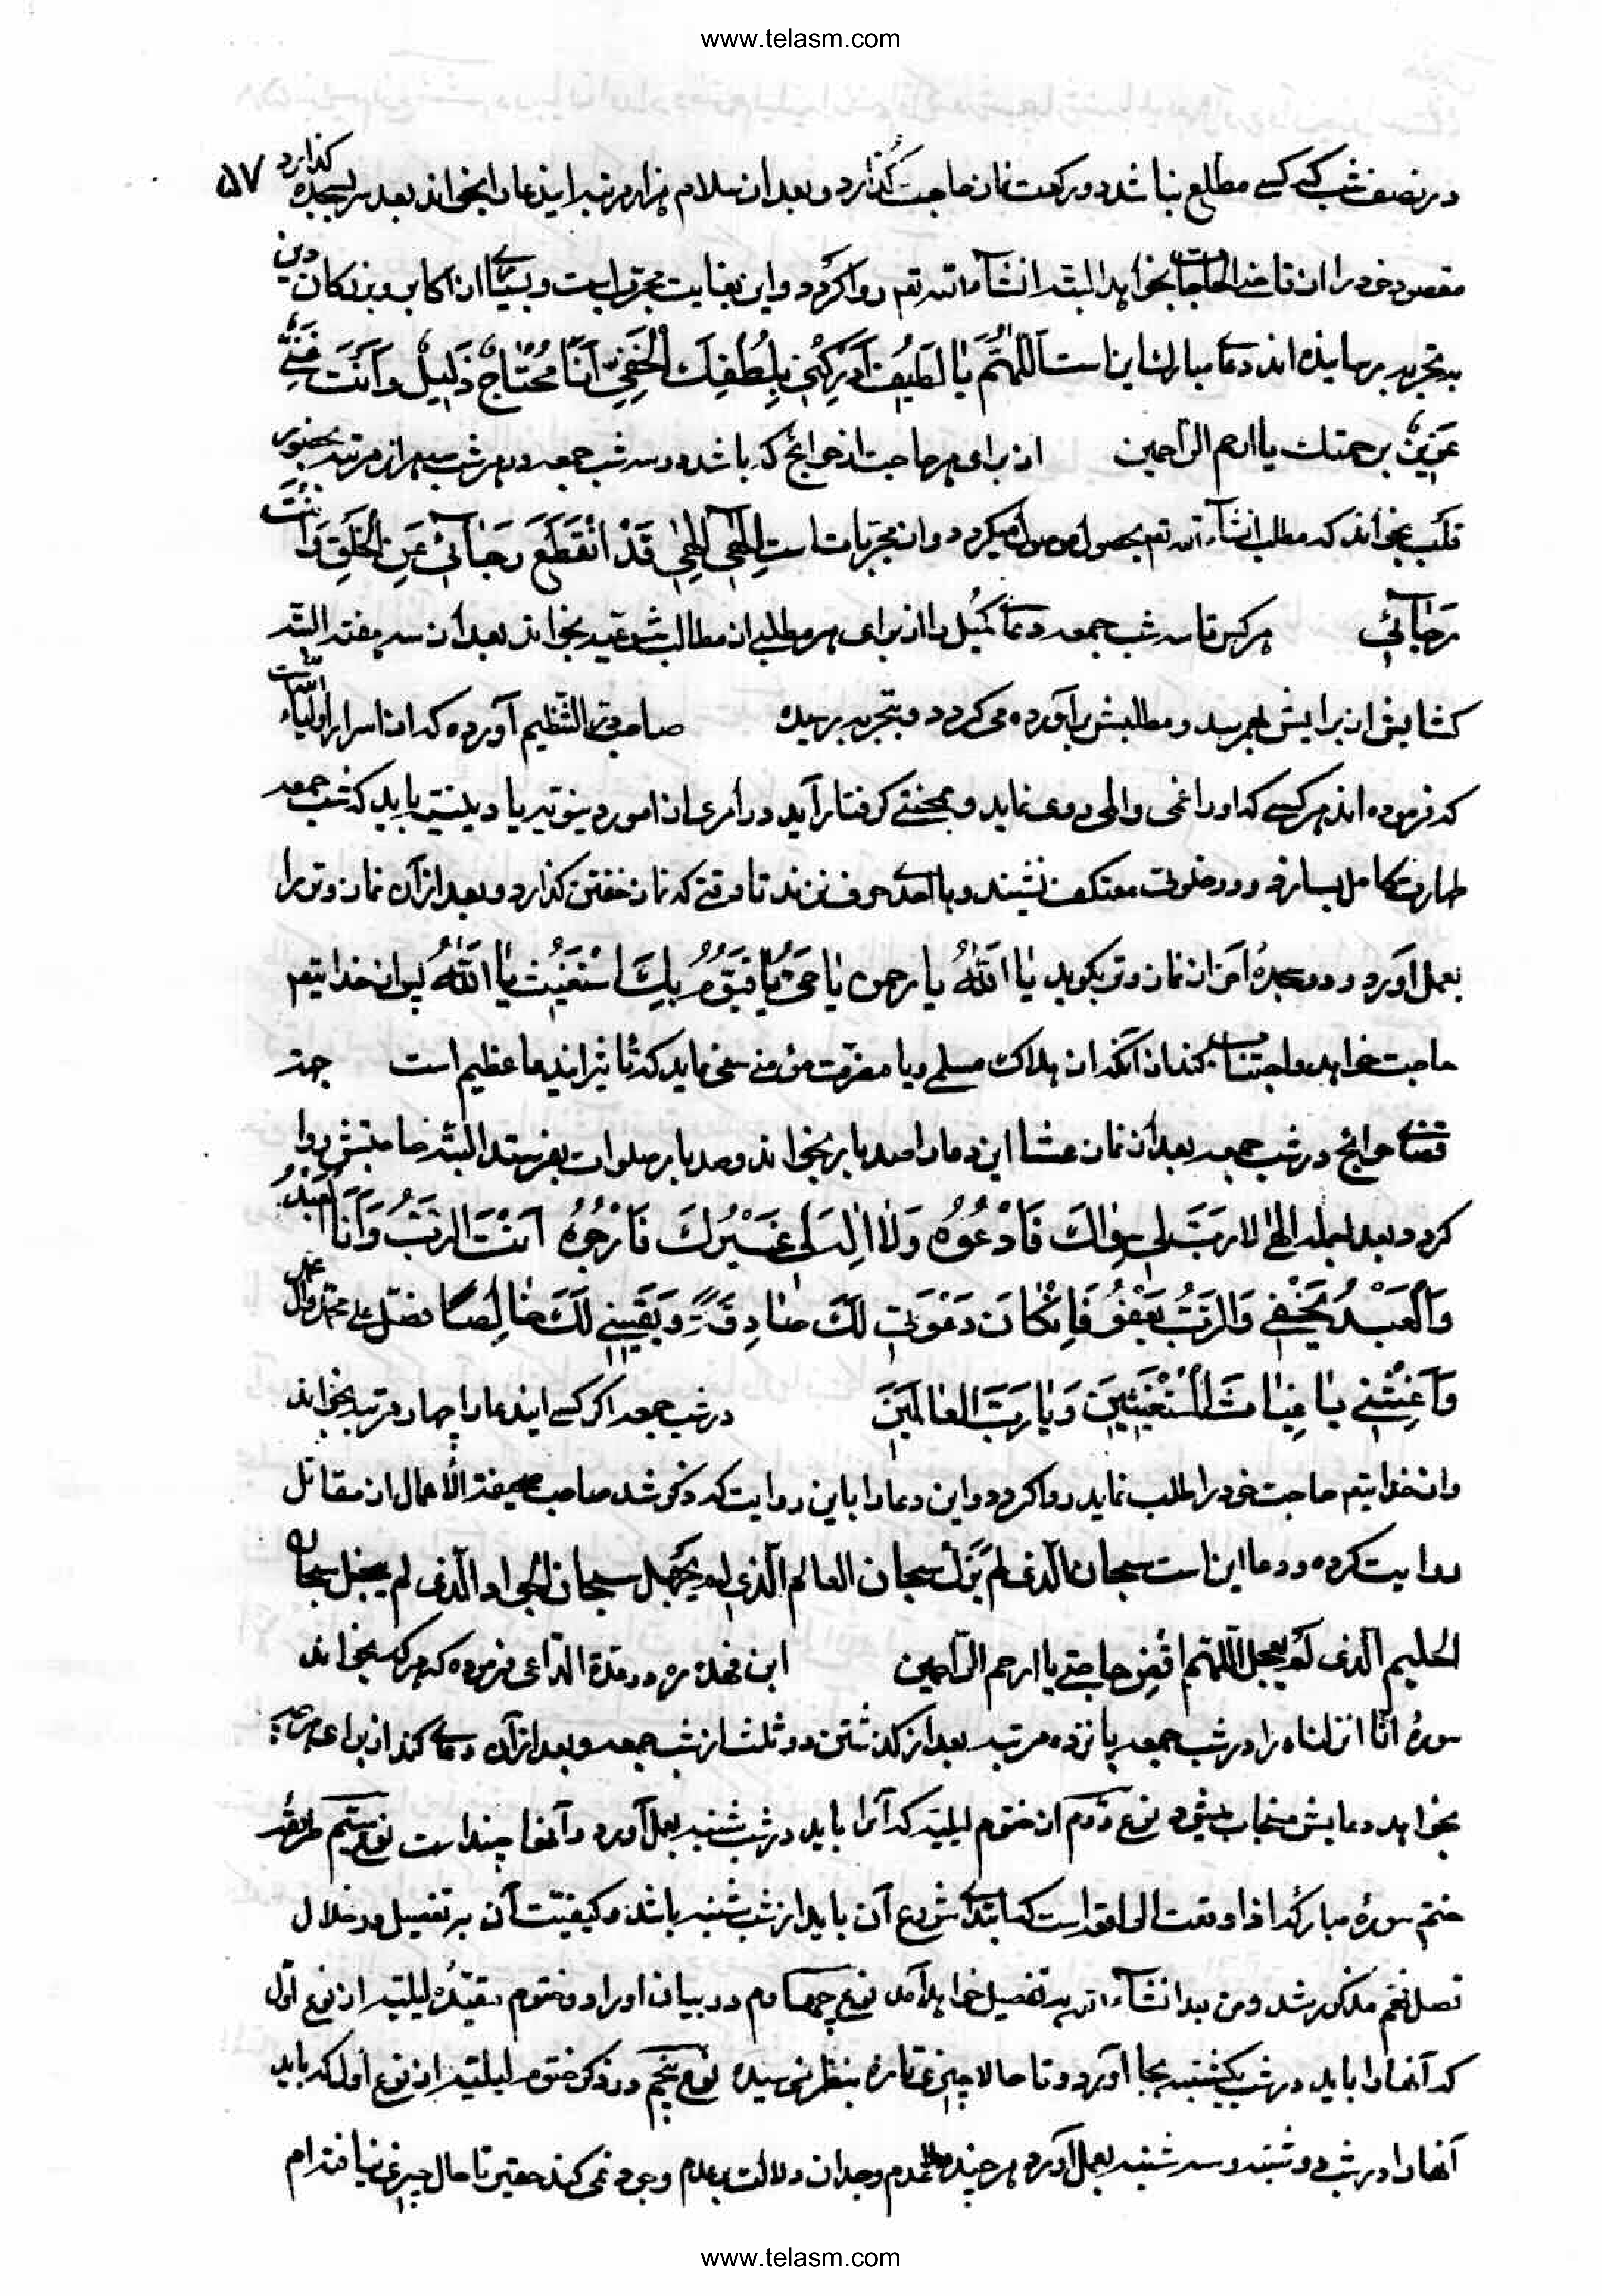 www.telasm.com
۵۷
در نصف شب که کسے مطلع نباشد دو رکعت نماز حاجت گذارد و بعد از سلام هزار مرتبه ایندعا را بخواند بعد سر بسجده گذارد
مقصود خود را از قاضی الحاجات بخواهد البته انشاء الله تعم روا گردد و این بغایت مجربست و بسیاے از اکابر و بزرگان دین
به تجربه رسانیده اند دعاے مبارك این است اَللّهُمَّ یٰا لَطیفُ اَدْرِکْنی بِلُطْفِكَ الْخَفِیِّ اَنَا مُحْتاجٌ ذَلیلٌ وَ اَنْتَ غَنِیٌّ
عَزیزٌ برحمتك یا ارحم الراحمین از برای هر حاجت از حوایج که باشد در سه شب جمعه در هر شب سه هزار مرتبه بحضور
قلب بخواند که مطلب انشاء الله تعم بحصول موصول میگردد و از مجربات است اِلٰهی اِلٰهی قَدْ انْقَطَعَ رَجٰائی عَنِ الْخَلْقِ وَ اَنْتَ
رَجٰائی هر کس تا سه شب جمعه دعاے کمیل را از برای هر مطلبے از مطالب شرعیه بخواند بعد از سه هفته البته
گشایش از برایش بهم رسد و مطلبش برآورده می گردد و بتجربه رسیده صاحب در النظیم آورده که از اسرار اولیاء الله است
که فرموده اند هر کسے که او را غمی و المی روی نماید و بمحنتے گرفتار آید در امری از امور دینویه یا دینیه باید که شب جمعه
طهارت کامل بسازد و در خلوت معتکف نشیند و با احدے حرف نزند تا وقتے که نماز خفتن گذارد و بعد از آن نماز وتر را
بعمل آورد و در سجدهٔ آخر از نماز وتر بگوید یٰا اَللهُ یا رحمن یٰا حَیُّ یٰا قَیُّومُ بِكَ اَسْتَغیثُ یٰا اَللهُ پس از خدایتعم
حاجت خواهد و اجتناب کند از آنکه از هلاك مسلمے و یا مضرت مؤمنے سخن نماید که تأثیر ایندعا عظیم است جهة
قضاے حوایج در شب جمعه بعد از نماز عشا این دعا را صد بار بخواند و صد بار صلوات بفرستد البته حاجتش روا
گردد بعد بسمله الٰهی لا رَبَّ لی سِواكَ فَاَدْعُوهُ وَلا اِلٰهَ لی غَیْرُكَ فَاَرْجُوهُ اَنْتَ الرَّبُّ وَ اَنَا الْعَبْدُ
وَ الْعَبْدُ یُخْفی وَالرَّبُّ یَعْفُو فَاِنْ کٰانَ دَعْوَتی لَكَ صٰادِقَةً وَ یَقینی لَكَ خٰالِصًا فصلّ علی محمد وآل محمد
وَ اَغِثْنی یٰا غِیٰاثَ الْمُسْتَغیثینَ وَ یٰا رَبَّ العٰالَمینَ در شب جمعه اگر کسے ایندعا را چهار مرتبه بخواند
و از خدایتعم حاجت خود را طلب نماید روا گردد و این دعا را باین روایت که ذکر شد صاحب صحیفة الأعمال از مقاتل
روایت کرده و دعا این است سبحان الّذی لَمْ یَزَلْ سبحان العالم الّذی لم یَجْهَل سبحان الجواد الّذی لم یبخل سبحان
الحلیم الّذی لَمْ یعجل اللّهمّ اقْضِ حاجتی یا ارحم الرّاحمین ابن فهد ره در عدة الدّاعی فرموده که هر که بخواند
سورهٔ انّا انزلناه را در شب جمعه پانزده مرتبه بعد از گذشتن دو ثلث از شب جمعه و بعد از آن دعاے کند از برای هر چه
بخواهد دعایش مستجاب میشود نوع دوم از ختوم لیلیّه که آنرا باید در شب شنبه بعمل آورد و آنها چند است نوع سیّم طریقهٔ
ختم سورهٔ مبارکهٔ اذا وقعت الواقعه است که ابتداے شروع آن باید از شب شنبه باشد و کیفیّت آن بر تفصیل در خلال
فصل پنجم مذکور شد و من بعد انشاء الله به تفصیل خواهد آمد نوع چهارم در بیان اوراد و ختوم مقیّدهٔ لیلیّه از نوع اوّل
که آنها را باید در شب یکشنبه بجا آورد و تا حالا چیزی تازه بنظر نرسیده نوع پنجم در ذکر ختوم لیلیّه از نوع اول که باید
آنها را در شب دو شنبه و سه شنبه بعمل آورد هر چند عدم وجدان دلالت بر عدم وجود نمی کند حقیر تا حال چیزی نیافته ام
www.telasm.com